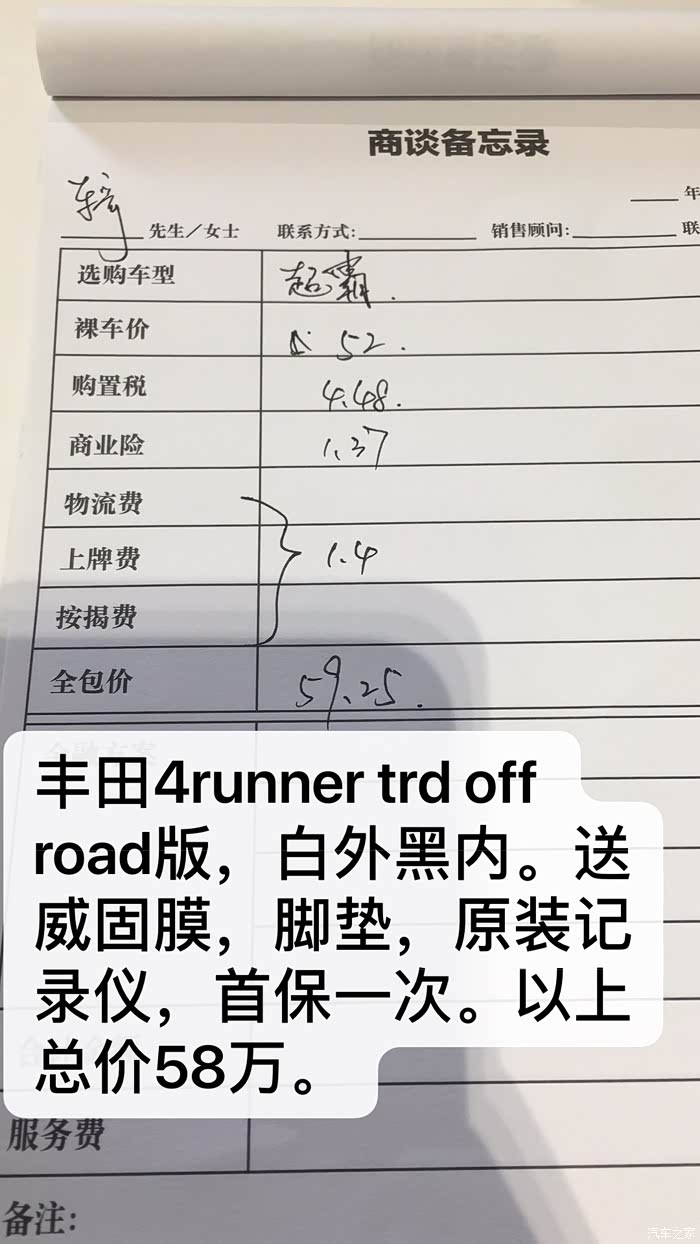 商谈备忘录
年
先生／女士 联系方式: 销售顾问: 联
选购车型 超霸.
裸车价 52.
购置税 4.48.
商业险 1.37
物流费
上牌费 1.4
按揭费
全包价 59.25.
丰田4runner trd off
road版，白外黑内。送
威固膜，脚垫，原装记
录仪，首保一次。以上
总价58万。
服务费
备注:
汽车之家